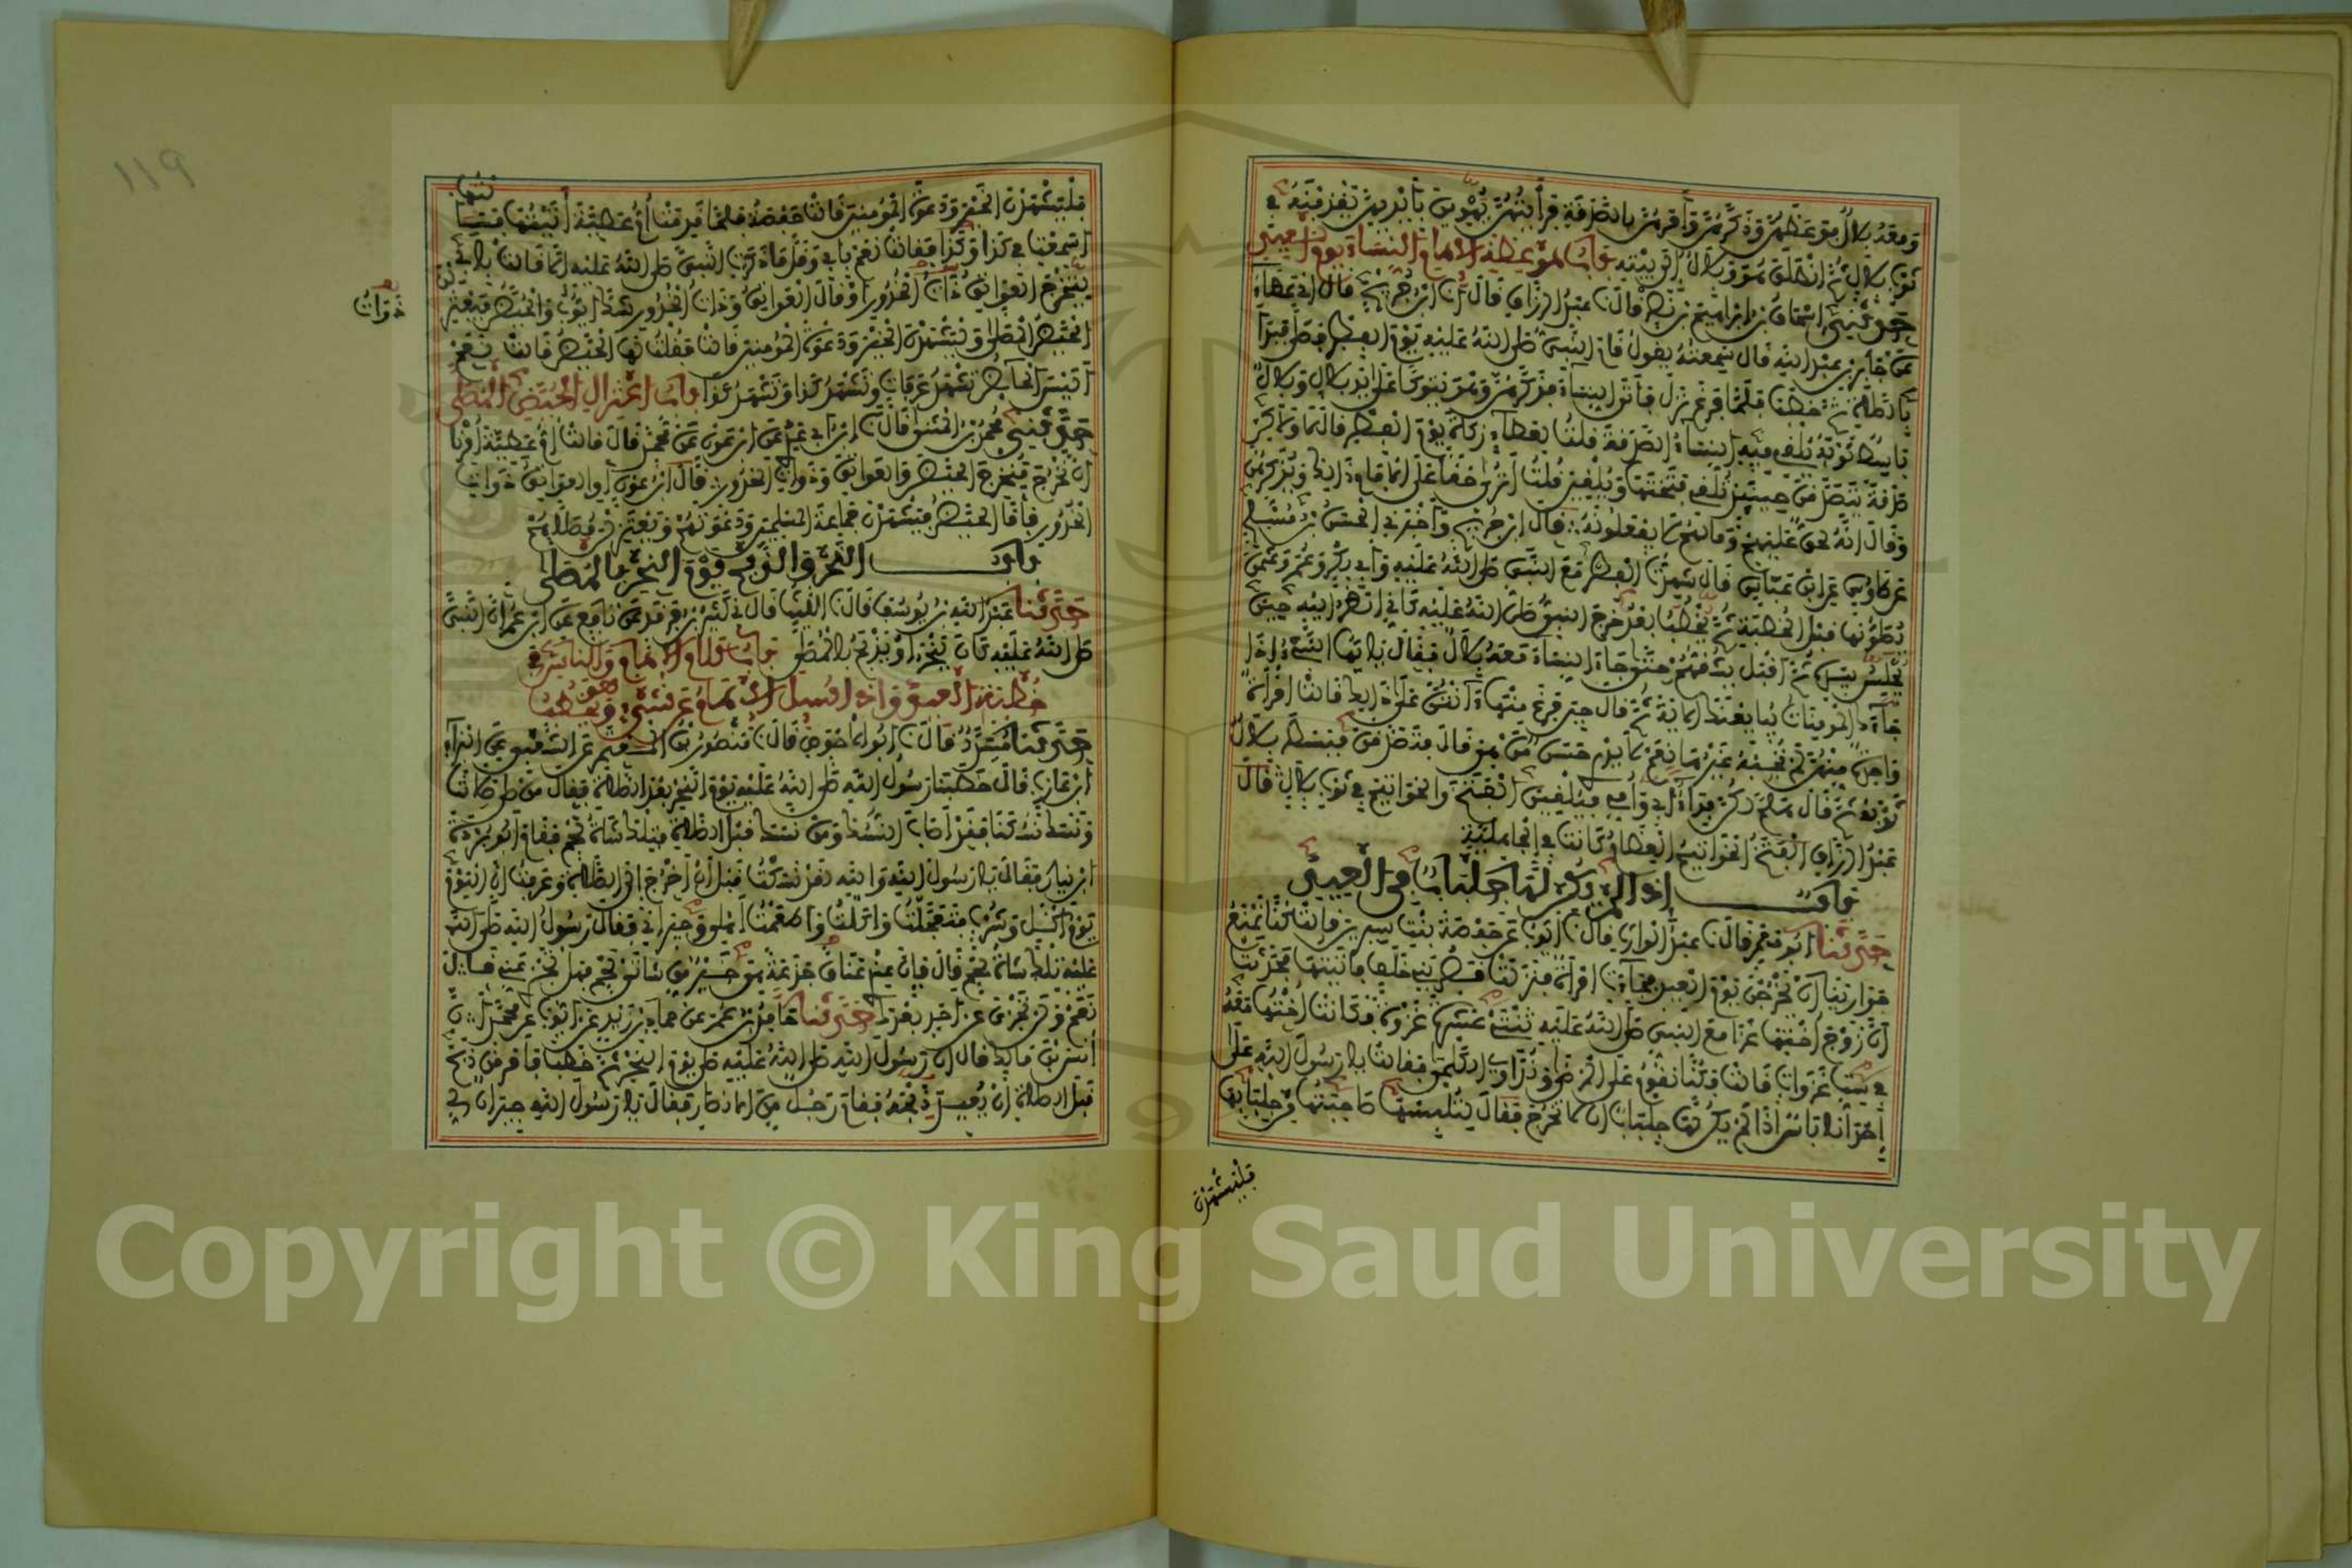 ومعه بلال فوعظهن وذكرهن وأمرهن بالصدقة فرأيتهن يهوين بأيديهن يقذفنه في
ثوب بلال ثم انطلق هو وبلال إلى بيته باب موعظة الامام النساء يوم العيد
حدثني إسحاق بن إبراهيم بن نصر قال نا عبد الرزاق قال أنا ابن جريج قال أخبرني عطاء
عن جابر بن عبد الله قال سمعته يقول قام النبي صلى الله عليه يوم الفطر فصلى فبدأ
بالصلاة ثم خطب فلما فرغ نزل فأتى النساء فذكرهن وهو يتوكأ على يد بلال وبلال
باسط ثوبه تلقي فيه النساء الصدقة قلت لعطاء زكاة يوم الفطر قال لا ولكن
صدقة يتصدقن حينئذ تلقي فتختها ويلقين قلت أترى حقا على الامام ذلك ويذكرهن
وقال إنه لحق عليهم وما لهم لا يفعلونه قال ابن جريج وأخبرني الحسن بن مسلم
عن طاوس عن ابن عباس قال شهدت الفطر مع النبي صلى الله عليه وأبي بكر وعمر وعثمن
يصلونها قبل الخطبة ثم يخطب بعد خرج النبي صلى الله عليه كأني انظر إليه حين
يجلس بيده ثم أقبل يشقهم حتى جاء النساء معه بلال فقال يا أيها النبي إذا
جاءك المومنات يبايعنك الاية ثم قال حين فرغ منها آنتن على ذلك قالت امرأة
واحدة منهن لم يجبه غيرها نعم لا يدري حسن من هي قال فتصدقن فبسط بلال
ثوبه ثم قال هلم لكن فداء أبي وأمي فيلقين الفتخ والخواتيم في ثوب بلال قال
عبد الرزاق الفتخ الخواتيم العظام كانت في الجاهلية
باب إذا لم يكن لها جلباب في العيد
حدثنا أبو معمر قال نا عبد الوارث قال نا أيوب عن حفصة بنت سيرين قالت كنا نمنع
جوارينا أن يخرجن يوم العيد فجاءت امرأة فنزلت قصر بني خلف فأتيتها فحدثت
أن زوج أختها غزا مع النبي صلى الله عليه ثنتي عشرة غزوة فكانت أختها معه
في ست غزوات قالت فكنا نقوم على المرضى ونداوي الكلمى فقالت يا رسول الله على
إحدانا بأس إذا لم يكن لها جلباب أن لا تخرج فقال لتلبسها صاحبتها من جلبابها
فليشهدن
١١٩
فليشهدن الخير ودعوة المومنين قالت حفصة فلما قدمت أم عطية أتيتها فسألتها
أسمعت في كذا وكذا فقالت نعم بأبي وقل ما ذكرت النبي صلى الله عليه إلا قالت بأبي
ليخرج العواتق ذات الخدور أو قال العواتق وذات الخدور شك أيوب والحيض فيعتزل
الحيض المصلى وليشهدن الخير ودعوة المومنين قالت فقلت لها الحيض قالت نعم
أليس الحائض تشهد عرفات وتشهد كذا وتشهد كذا باب اعتزال الحيض المصلى
حدثني محمد بن المثنى قال نا ابن أبي عدي عن ابن عون عن محمد قال قالت أم عطية أمرنا
أن نخرج فنخرج الحيض والعواتق وذوات الخدور قال ابن عون أو العواتق ذوات
ذوات
الخدور فأما الحيض فيشهدن جماعة المسلمين ودعوتهم ويعتزلن مصلاهم
باب النحر والذبح يوم النحر بالمصلى
حدثنا عبد الله بن يوسف قال نا الليث قال ني كثير بن فرقد عن نافع عن ابن عمر أن النبي
صلى الله عليه كان ينحر أو يذبح بالمصلى باب كلام الامام والناس في
خطبة العيد وإذا سئل الامام عن شيء وهو يخطب
حدثنا مسدد قال نا أبو الاحوص قال نا منصور بن المعتمر عن الشعبي عن البراء
ابن عازب قال خطبنا رسول الله صلى الله عليه يوم النحر بعد الصلاة فقال من صلى صلاتنا
ونسك نسكنا فقد أصاب النسك ومن نسك قبل الصلاة فتلك شاة لحم فقام أبو بردة
ابن نيار فقال يا رسول الله والله لقد نسكت قبل أن أخرج إلى الصلاة وعرفت أن اليوم
يوم أكل وشرب فتعجلت وأكلت وأطعمت أهلي وجيراني فقال رسول الله صلى الله
عليه تلك شاة لحم قال فإن عندي عناق جذعة هي خير من شاتي لحم فهل تجزي عني قال
نعم ولن تجزي عن أحد بعدك حدثنا حامد بن عمر عن حماد بن زيد عن أيوب عن محمد أن
أنس بن مالك قال إن رسول الله صلى الله عليه صلى يوم النحر ثم خطب فأمر من ذبح
قبل الصلاة أن يعيد ذبحه فقام رجل من الانصار فقال يا رسول الله جيران لي
Copyright © King Saud University